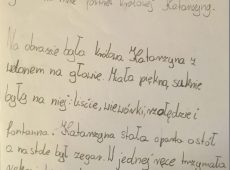 na nie portret królowej Katarzyny.
Na obrazie była królowa Katarzyna z
welonem na głowie. Miała piękną suknie
były na niej: liście, wiewiórki, żołędzie i
fontanna. Katarzyna stała oparta o stół
a na stole był zegar. W jednej ręce trzymała